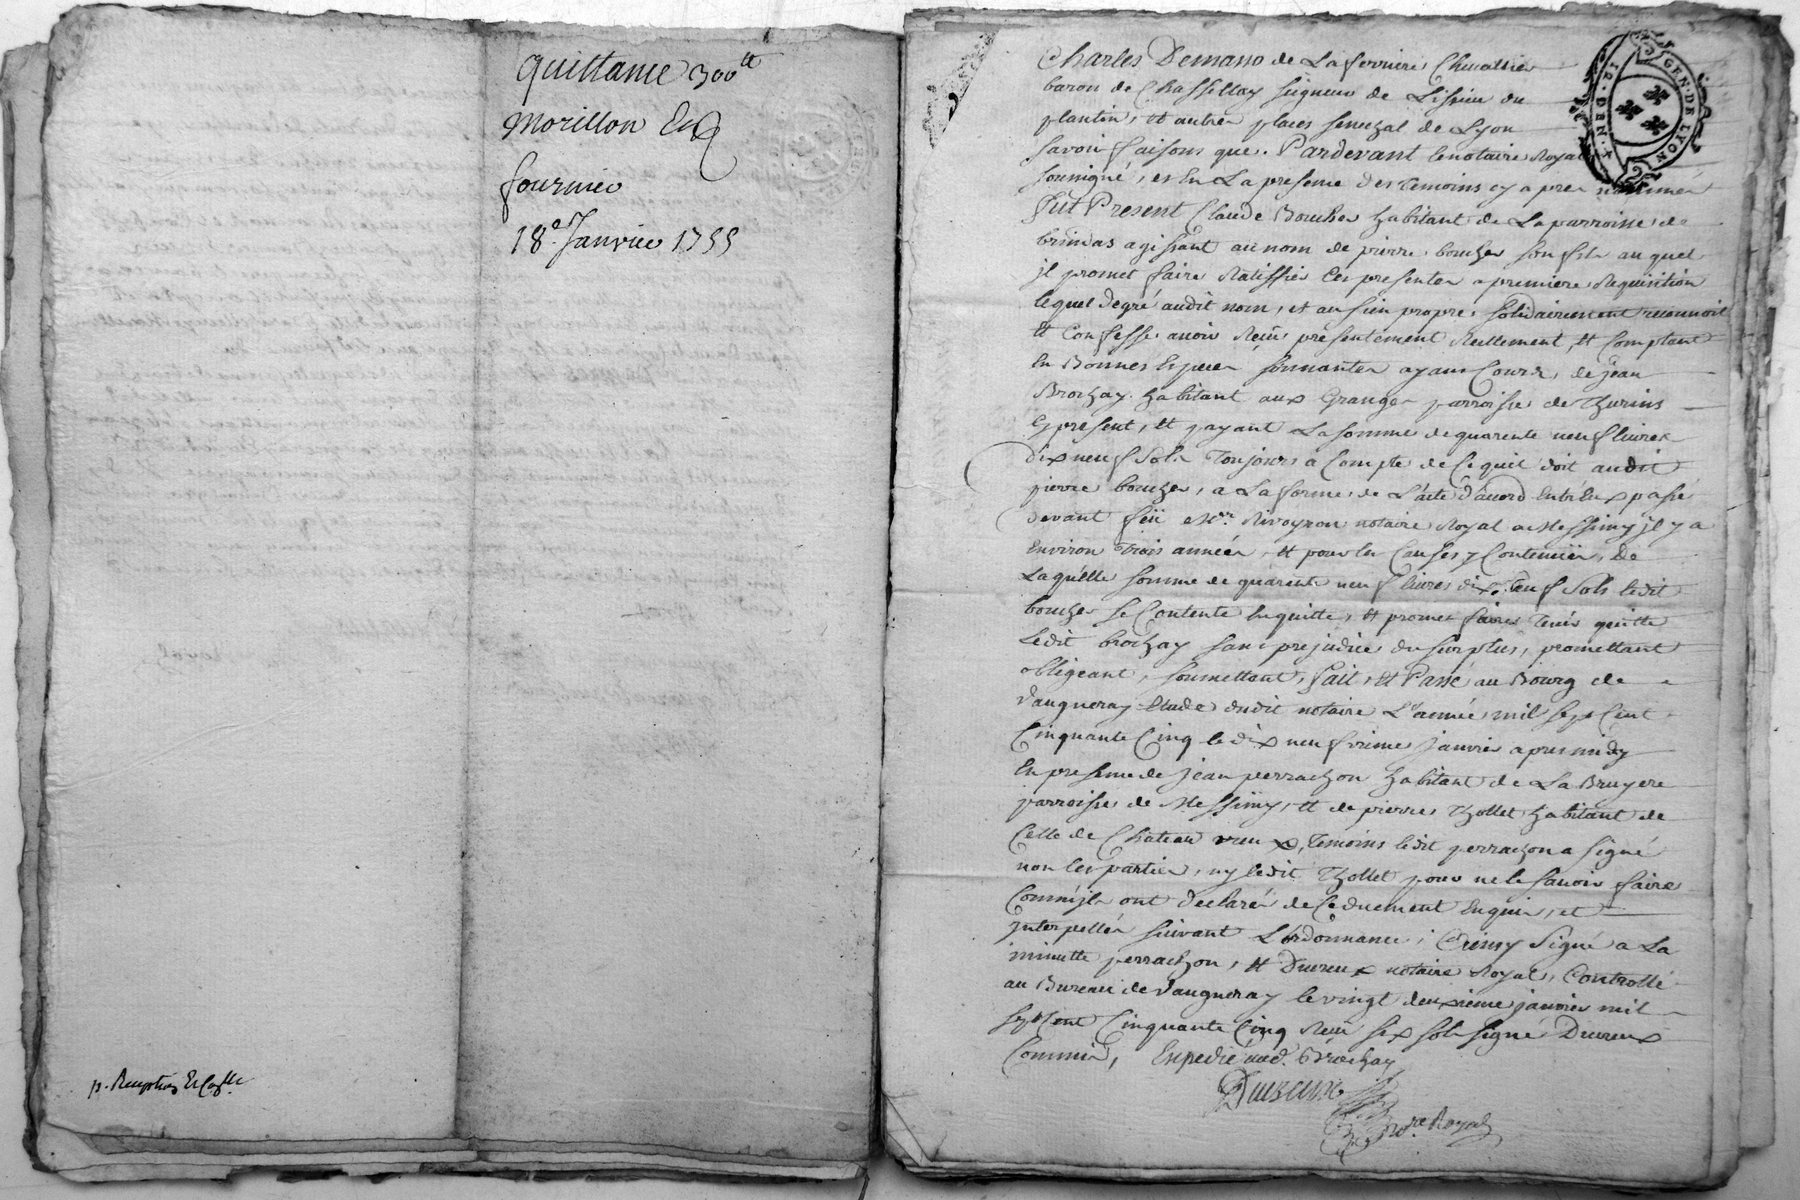 quittance 300tt
Morillon Et
fournier
18e. Janvier 1755
p. Reception
GEN. DE LYON
Charles Demasso de La ferriere Chevallier
baron de Chassellay seigneur de Lissieu du
plantin, et autres places senechal de Lyon
savoir faisons que. Pardevant le notaire Royal
soussigné, et En La presence des temoins cy apres nommés
Fut Present Claude Boucher habitant de La parroisse de
brindas agissant au nom de pierre boucher son fils au quel
il promet faire Ratiffier Ces presentes a premiere Requisition
lequel de gré audit nom, et au sien propre, solidairement reconnoit
et Confesse avoir Reçu presentement Reellement, et Comptant
En Bonnes Especes sonnantes ayant Cours, de jean
Brochay habitant aux Granges parroisse de Thurins
Cy present, et payant La somme de quarente neuf livres
dix neuf sols Toujours a Compte de Ce quil doit audit
pierre boucher, a La forme de L'acte d'accord Entr'Eux passé
devant feü Mtre. Rivoyron notaire Royal a Messimy il y a
Environ Trois années, et pour les Causes y Contenües, De
Laquelle somme de quarente neuf livres dix neuf sols ledit
boucher se Contente En quitte, et promet faire Tenir quitte
Ledit brochay sans prejudice du surplus, promettant
obligeant, soumettant, fait, et Passé au Bourg de
Vaugneray Etude dudit notaire L'année mil sept Cent
Cinquante Cinq le dix neufvieme janvier apres midy
En presence de jean perrachon habitant de La Bruyere
parroisse de Messimy, et de pierre Thollet habitant de
Celle de Chateau vieux, temoins ledit perrachon a signé
non les parties, ny ledit Thollet pour ne le savoir faire
Comm'ils ont declaré de Ce duement Enquis, et
interpellés suivant L'ordonnance; Ainsy signé a La
minutte perrachon, et Dureux notaire Royal, Controllé
au Bureau de Vaugneray le vingt deuxieme janvier mil
sept Cent Cinquante Cinq Reçu six sols signé Dureux
Commis, Expedié aud. Brochay
Dureux
Nore Royal